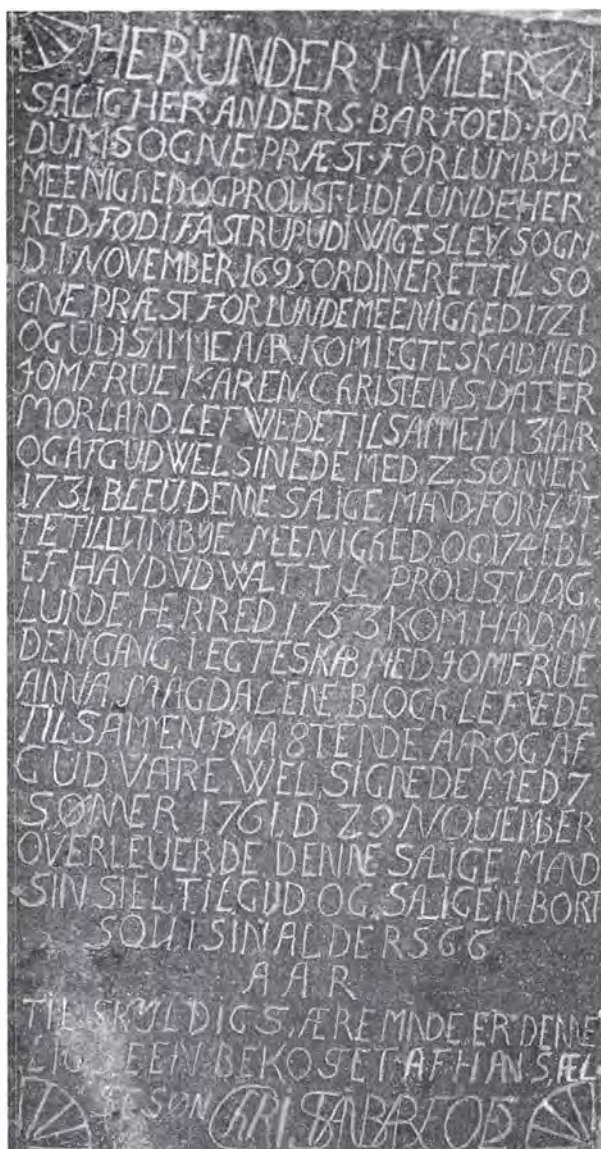 HERUNDER HVILER
SALIG HER ANDERS. BARFOED. FOR
DUM SOGNE PRÆST. FOR LUMBŸE
MEENIGHED. OG PROUST. UDI LUNDE HER
RED. FØD I FASTRUP UDI WIGESLEV SOGN
D. 1 NOVEMBER. 1695 ORDINERET TIL SO
GNE PRÆST FOR LUNDE MEENIGHED 1721
OG UDI SAMME AAR. KOM I EGTESKAB. MED
JOMFRUE KAREN CHRISTENSDATER
MORLAND. LEFWEDE TILSAMMEN 13 AAR
OG AF GUD WELSINEDE MED 2. SØNNER
1731. BLEU. DENNE SALIGE MAND. FORFLŸT
TE TIL LUMBŸE MEENIGHED. OG 1741 BL
EF HAND VDWALT TIL PROUST. UDI
LUNDE HERRED 1753 KOM HAND. AN
DEN GANG I EGTESKAB. MED JOMFRUE
ANNA. MAGDALENE BLOCH. LEFVEDE
TILSAMEN PAA 8TENDE AAR OG AF
GUD VARE. WEL. SIGNEDE MED 7
SØNNER 1761. D 29 NOUEMBER
OVERLEUERDE DENNE SALIGE MAND
SIN SIEL TIL GUD OG. SALIGEN. BORT
SOU I SIN ALDERS 66
AAR
TIL SKYLDIGS. ÆREMINDE. ER DENNE
LIGSTEEN. BEKOSTET. AF HANS. ÆL
STE SØN CHRISTIAN BARFOED